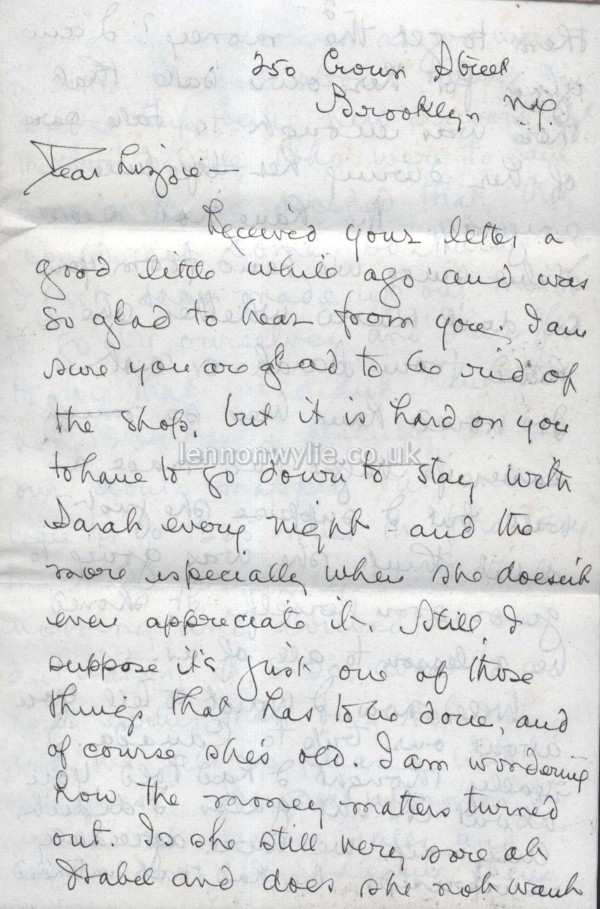 250 Crown Street
Brooklyn N.Y.
Dear Lizzie —
Received your letter a
good little while ago and was
so glad to hear from you. I am
sure you are glad to be rid of
the shop, but it is hard on you
lennonwylie.co.uk
to have to go down to stay with
Sarah every night and the
more especially when she doesn't
even appreciate it. Still, I
suppose it's just one of those
things that has to be done, and
of course she's old. I am wondering
how the money matters turned
out. Is she still very sore at
Isabel and does she not want